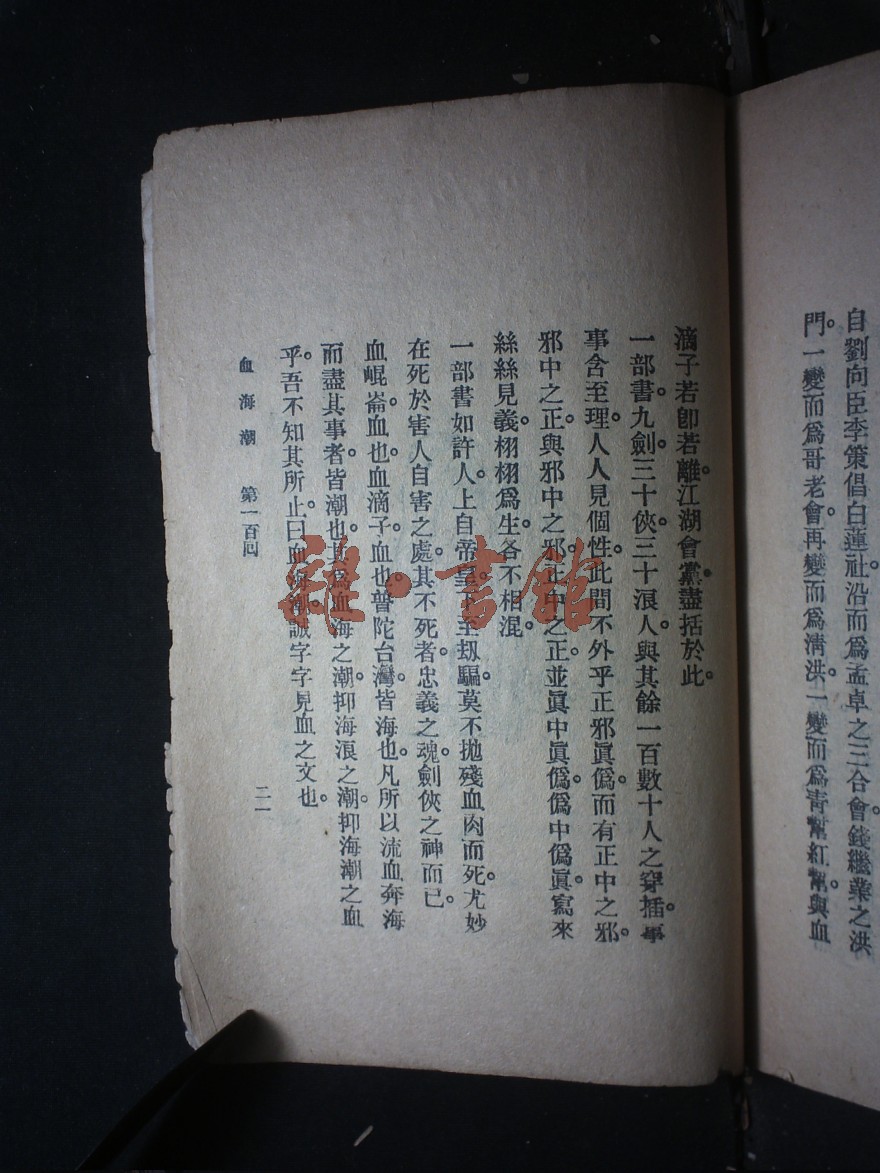 自劉向臣李策倡白蓮社沿而爲孟卓之三合會。錢繼業之洪
門。一變而爲哥老會。再變而爲清洪。一變而爲青幫紅幫。與血
滴子若卽若離。江湖會黨。盡括於此。
一部書。九劍三十俠。三十浪人。與其餘一百數十人之穿插。事
事含至理。人人見個性。此間不外乎正邪眞僞。而有正中之邪。
邪中之正。與邪中之邪。正中之正。並眞中眞僞。僞中僞眞。寫來
絲絲見義。栩栩爲生。各不相混。
一部書如許人。上自帝皇。下至刼騙。莫不拋殘血肉而死。尤妙
在死於害人自害之處。其不死者。忠義之魂。劍俠之神而已。
血崐崙血也。血滴子血也。普陀台灣。皆海也。凡所以流血奔海
而盡其事者。皆潮也。其爲血海之潮。抑海浪之潮。抑海潮之血
乎。吾不知其所止。曰血海潮。誠字字見血之文也。
血海潮 第一百回
二一
雜·書館